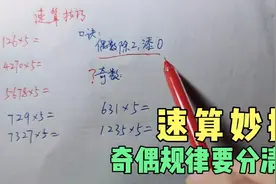 速算技巧
126×5=
4270×5=
5678×5=
729×5=
7327×5=
口诀:
偶数除2,添0
?奇数:
631×5=
1235×5=
速算妙
奇偶规律要分清